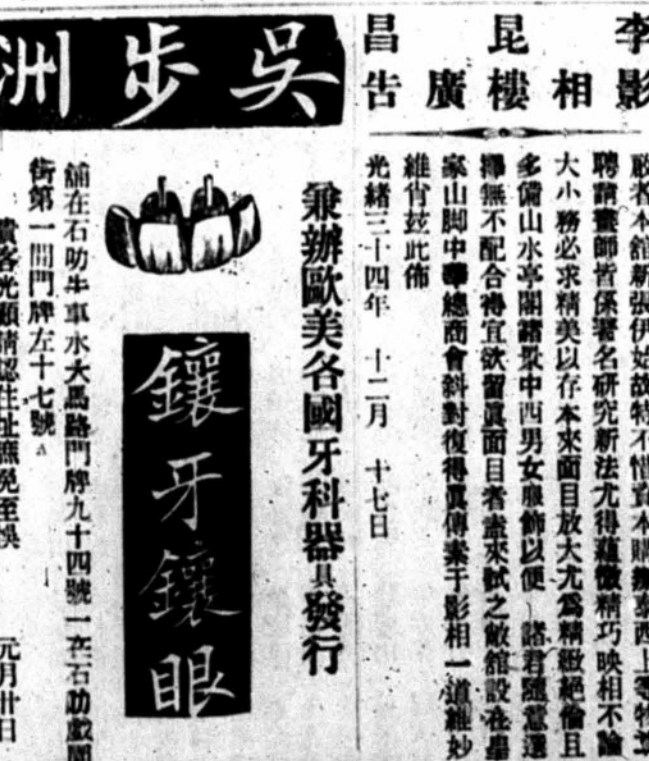 李昆昌
影相樓廣告
敝者本舘新張伊始故特不惜資本購辦泰西上等物並
聘請畫師皆係著名研究新法尤得蘊微精巧映相不論
大小務必求精美以存本來面目放大尤爲精緻絕倫且
多備山水亭閣諸景中西男女服飾以便 諸君隨意選
擇無不配合得宜欲留眞面目者盍來試之敝舘設在
家山脚中華總商會斜對復得眞傳業于影相一道維妙
維肖茲此佈
光緒三十四年 十二月 十七日
吳步洲
兼辦歐美各國牙科器具發行
鑲牙鑲眼
舖在石叻牛車水大馬路門牌九十四號一在石叻戲園
街第一間門牌左十七號
貴客光顧請認住址庶免至悞
元月卅日